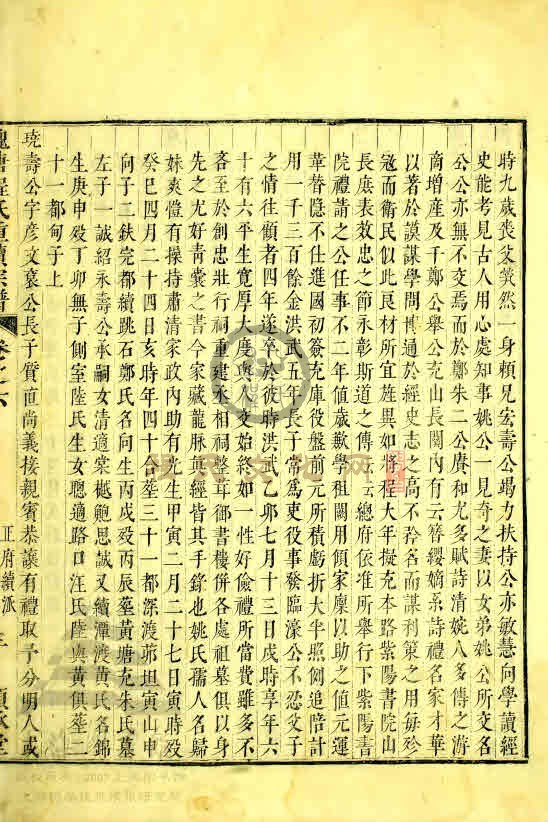 時九歲喪父煢然一身賴兄宏壽公竭力扶持公亦敏慧向學讀經
史能考見古人用心處知事姚公一見奇之妻以女弟姚公所交名
公公亦無不交焉而於鄭朱二公賡和尤多賦詩清婉人多傳之游
商增産及千鄭公舉公充山長關內有云簪纓嫡系詩禮名家才華
以著於謨謀學問博通於經史志之高不矜名而謀利策之用每殄
寇而衛民似此良材所宜旌異如將程大年擬充本路紫陽書院山
長庶表效忠之節永彰斯道之傳云云總府依准所舉行下紫陽書
院禮請之公任事不二年值歲歉學租闕用傾家廩以助之值元運
華替隱不仕進國初簽充庫役盤前元所積虧折大半照例追陪計
用一千三百餘金洪武五年長子常為吏役事發臨濠公不忍父子
之情往顧者四年遂卒於彼時洪武乙卯七月十三日戌時享年六
十有六平生寬厚大度與人交始終如一性好儉禮所當費雖多不
吝至於創忠壯行祠重建木相祠整葺御書樓併各處祖墓俱以身
先之尤好青囊之書今家藏龍脉與經皆其手錄也姚氏孺人名歸
妹爽愷有操持肅清家政內助有先生甲寅二月二十七日寅時殁
癸巳四月二十四日亥時年四十塟三十一都深渡茆坦寅山申
向子二鈇完都續跳石鄭氏名向生丙戌殁丙辰塟黃塘充朱氏墓
左子一誠紹永壽公承嗣女清適棠樾鮑思誠又續潭渡黃氏名錦
生庚申殁丁卯無子側室陸氏生女聰適路口汪氏陸與黃俱塟二
十一都甸子上
堯壽公字彦文褱公長子質直尚義接親賓恭讓有禮取予分明人或
槐塘程氏重續宗譜 卷之六 正府續派 三